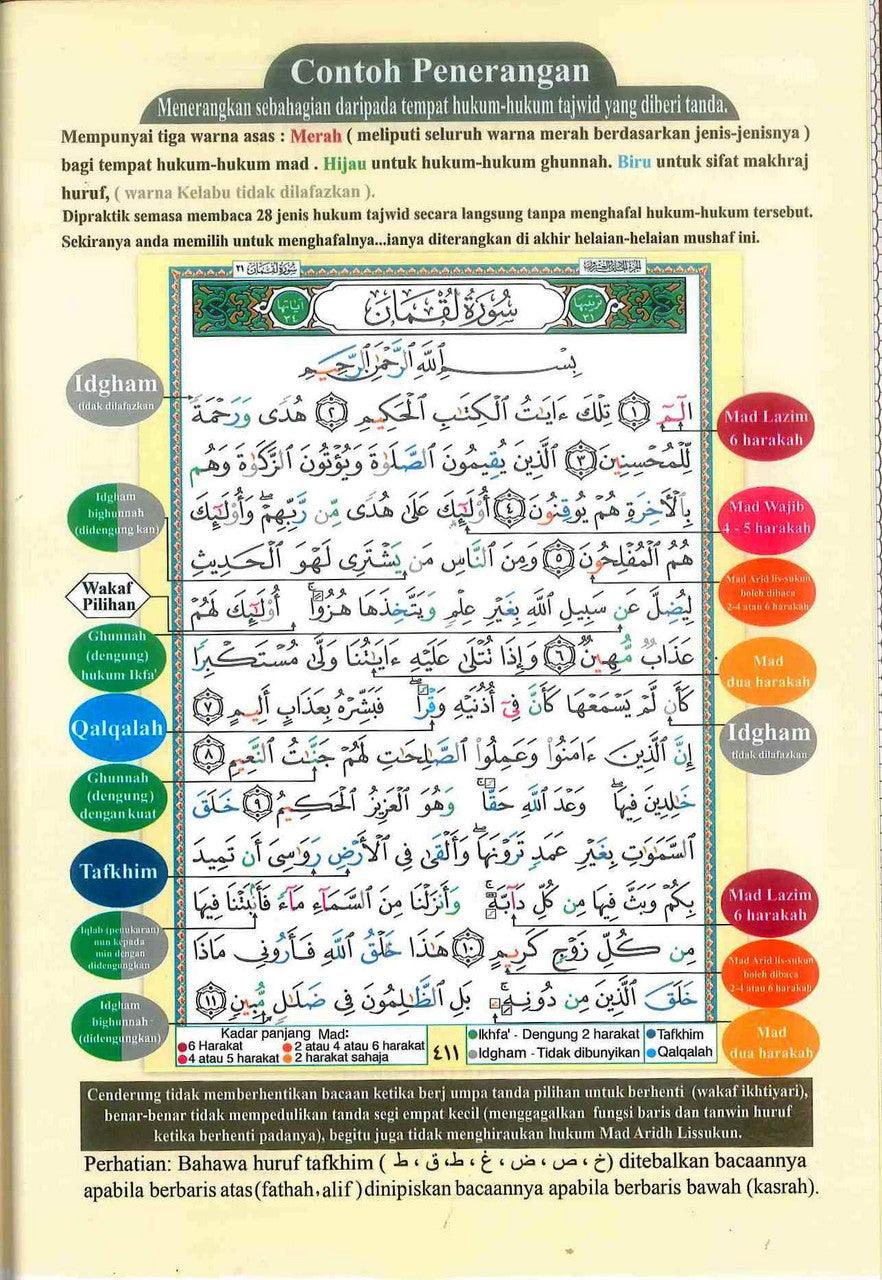 Contoh Penerangan
Menerangkan sebahagian daripada tempat hukum-hukum tajwid yang diberi tanda.
Mempunyai tiga warna asas : Merah ( meliputi seluruh warna merah berdasarkan jenis-jenisnya )
bagi tempat hukum-hukum mad . Hijau untuk hukum-hukum ghunnah. Biru untuk sifat makhraj
huruf, ( warna Kelabu tidak dilafazkan ).
Dipraktik semasa membaca 28 jenis hukum tajwid secara langsung tanpa menghafal hukum-hukum tersebut.
Sekiranya anda memilih untuk menghafalnya...ianya diterangkan di akhir helaian-helaian mushaf ini.
سُورَةُ لُقْمَان ٣١
آياتها ٣٤
سُورَةُ لُقْمَانَ
ترتيبها ٣١
بِسْمِ اللَّهِ الرَّحْمَٰنِ الرَّحِيمِ
الٓمٓ ١ تِلْكَ ءَايَٰتُ الْكِتَٰبِ الْحَكِيمِ ٢ هُدًى وَرَحْمَةً
لِّلْمُحْسِنِينَ ٣ الَّذِينَ يُقِيمُونَ الصَّلَوٰةَ وَيُؤْتُونَ الزَّكَوٰةَ وَهُم
بِالْأَخِرَةِ هُمْ يُوقِنُونَ ٤ أُوْلَٰٓئِكَ عَلَىٰ هُدًى مِّن رَّبِّهِمْ ۖ وَأُوْلَٰٓئِكَ
هُمُ الْمُفْلِحُونَ ٥ وَمِنَ النَّاسِ مَن يَشْتَرِى لَهْوَ الْحَدِيثِ
لِيُضِلَّ عَن سَبِيلِ اللَّهِ بِغَيْرِ عِلْمٍ وَيَتَّخِذَهَا هُزُوًا ۚ أُوْلَٰٓئِكَ لَهُمْ
عَذَابٌ مُّهِينٌ ٦ وَإِذَا تُتْلَىٰ عَلَيْهِ ءَايَٰتُنَا وَلَّىٰ مُسْتَكْبِرًا
كَأَن لَّمْ يَسْمَعْهَا كَأَنَّ فِىٓ أُذُنَيْهِ وَقْرًا ۖ فَبَشِّرْهُ بِعَذَابٍ أَلِيمٍ ٧
إِنَّ الَّذِينَ ءَامَنُوا۟ وَعَمِلُوا۟ الصَّٰلِحَٰتِ لَهُمْ جَنَّٰتُ النَّعِيمِ ٨
خَٰلِدِينَ فِيهَا ۖ وَعْدَ اللَّهِ حَقًّا ۚ وَهُوَ الْعَزِيزُ الْحَكِيمُ ٩ خَلَقَ
السَّمَٰوَٰتِ بِغَيْرِ عَمَدٍ تَرَوْنَهَا ۖ وَأَلْقَىٰ فِى الْأَرْضِ رَوَٰسِىَ أَن تَمِيدَ
بِكُمْ وَبَثَّ فِيهَا مِن كُلِّ دَآبَّةٍ ۚ وَأَنزَلْنَا مِنَ السَّمَآءِ مَآءً فَأَنۢبَتْنَا فِيهَا
مِن كُلِّ زَوْجٍ كَرِيمٍ ١٠ هَٰذَا خَلْقُ اللَّهِ فَأَرُونِى مَاذَا
خَلَقَ الَّذِينَ مِن دُونِهِ ۚ بَلِ الظَّٰلِمُونَ فِى ضَلَٰلٍ مُّبِينٍ ١١
Idgham
(tidak dilafazkan
Idgham
bighunnah
(didengung kan)
Wakaf
Pilihan
Ghunnah
(dengung)
hukum Ikfa'
Qalqalah
Ghunnah
(dengung)
dengan kuat
Tafkhim
Iqlab (penukaran)
nun kepada
mim dengan
didengungkan
Idgham
bighunnah
(didengungkan)
Mad Lazim
6 harakah
Mad Wajib
4 - 5 harakah
Mad Arid lis-sukun
boleh dibaca
2-4 atau 6 harakah
Mad
dua harakah
Idgham
tidak dilafazkan
Mad Lazim
6 harakah
Mad Arid lis-sukun
boleh dibaca
2-4 atau 6 harakah
Mad
dua harakah
Kadar panjang Mad:
6 Harakat 2 atau 4 atau 6 harakat
4 atau 5 harakat 2 harakat sahaja
٤١١
Ikhfa' - Dengung 2 harakat Tafkhim
Idgham - Tidak dibunyikan Qalqalah
Cenderung tidak memberhentikan bacaan ketika berj umpa tanda pilihan untuk berhenti (wakaf ikhtiyari),
benar-benar tidak mempedulikan tanda segi empat kecil (menggagalkan fungsi baris dan tanwin huruf
ketika berhenti padanya), begitu juga tidak menghiraukan hukum Mad Aridh Lissukun.
Perhatian: Bahawa huruf tafkhim ( خ ، ص ، ض ، غ ، ط ، ق ، ظ ) ditebalkan bacaannya
apabila berbaris atas (fathah, alif ) dinipiskan bacaannya apabila berbaris bawah (kasrah).